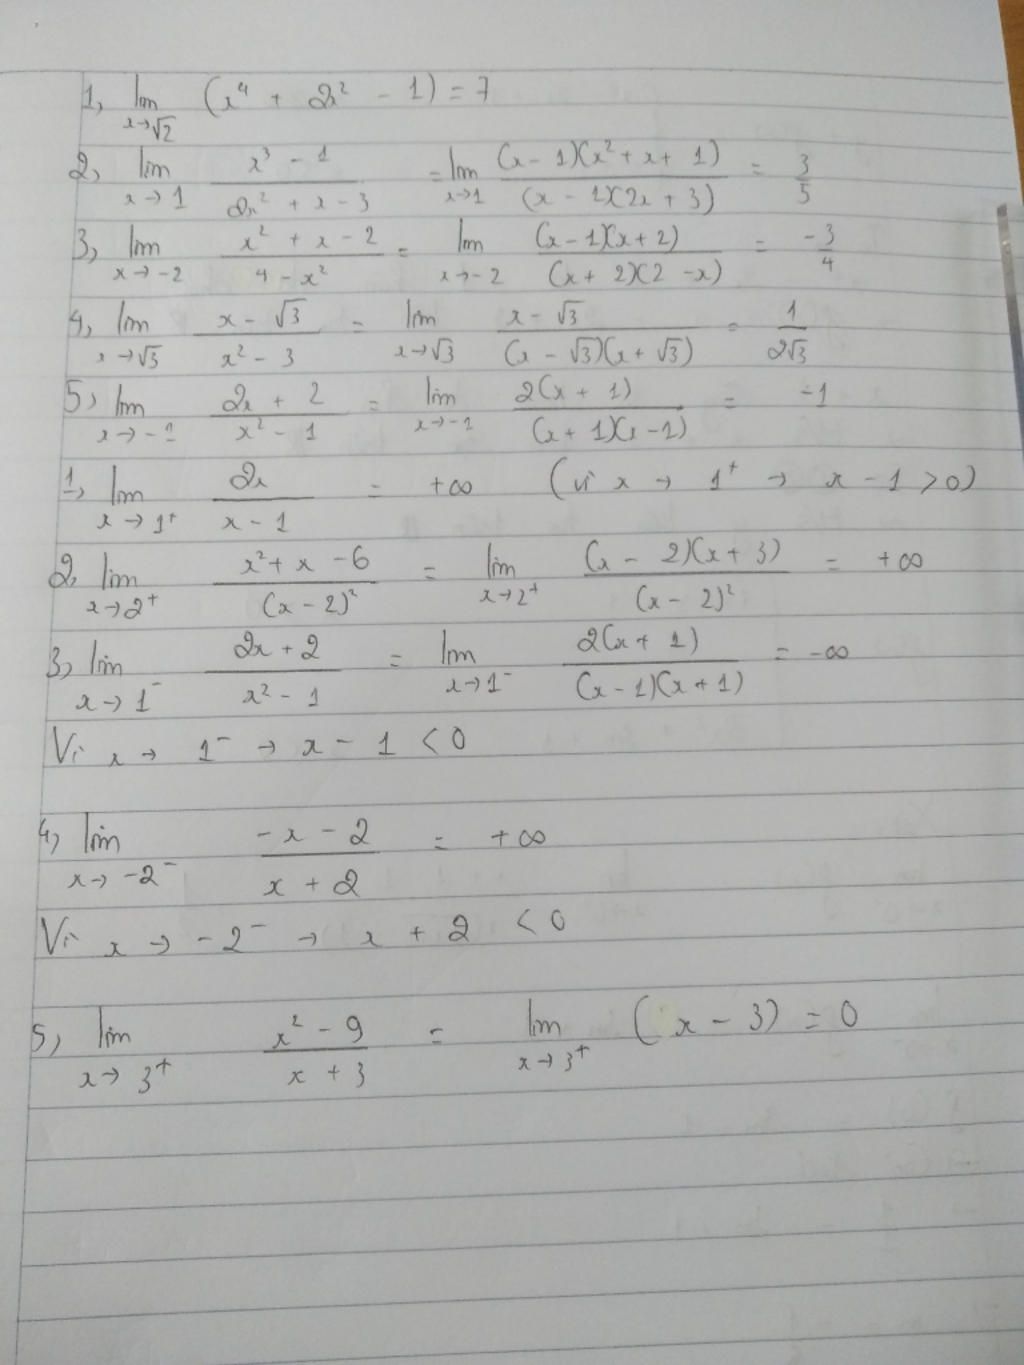 1, lim x→√2 (x⁴ + 2x² - 1) = 7
2, lim x→1 (x³ - 1)/(2x² + x - 3) = lim x→1 ((x - 1)(x² + x + 1))/((x - 1)(2x + 3)) = 3/5
3, lim x→-2 (x² + x - 2)/(4 - x²) = lim x→-2 ((x - 1)(x + 2))/((x + 2)(2 - x)) = -3/4
4, lim x→√3 (x - √3)/(x² - 3) = lim x→√3 (x - √3)/((x - √3)(x + √3)) = 1/(2√3)
5, lim x→-1 (2x + 2)/(x² - 1) = lim x→-1 (2(x + 1))/((x + 1)(x - 1)) = -1
1, lim x→1⁺ 2x/(x - 1) = +∞ (vì x → 1⁺ → x - 1 > 0)
2, lim x→2⁺ (x² + x - 6)/(x - 2)² = lim x→2⁺ ((x - 2)(x + 3))/(x - 2)² = +∞
3, lim x→1⁻ (2x + 2)/(x² - 1) = lim x→1⁻ (2(x + 1))/((x - 1)(x + 1)) = -∞
Vì x → 1⁻ → x - 1 < 0
4, lim x→-2⁻ (-x - 2)/(x + 2) = +∞
Vì x → -2⁻ → x + 2 < 0
5, lim x→3⁺ (x² - 9)/(x + 3) = lim x→3⁺ (x - 3) = 0